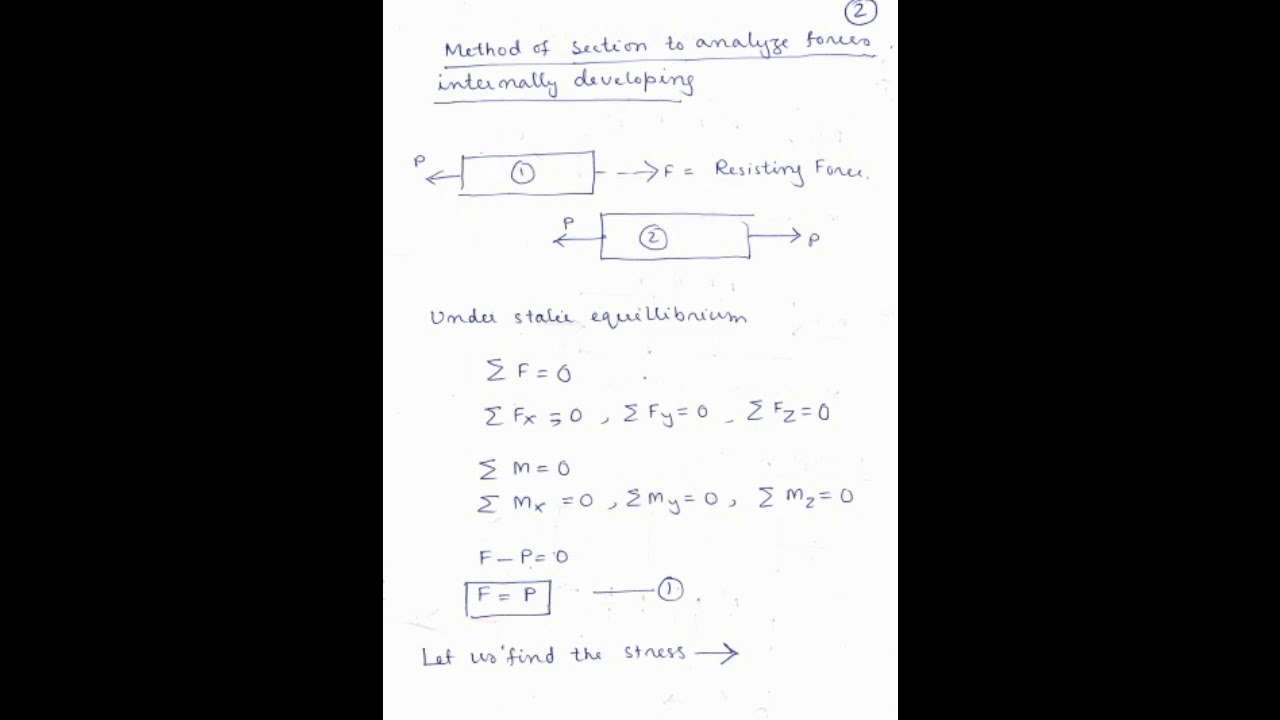 2
Method of section to analyze forces
internally developing
P
1
F = Resisting Force.
P
2
P
Under static equillibrium
Σ F = 0
Σ Fx = 0 , Σ Fy = 0 , Σ Fz = 0
Σ M = 0
Σ Mx = 0 , Σ My = 0 , Σ Mz = 0
F – P = 0
F = P —— 1 .
Let us find the stress →